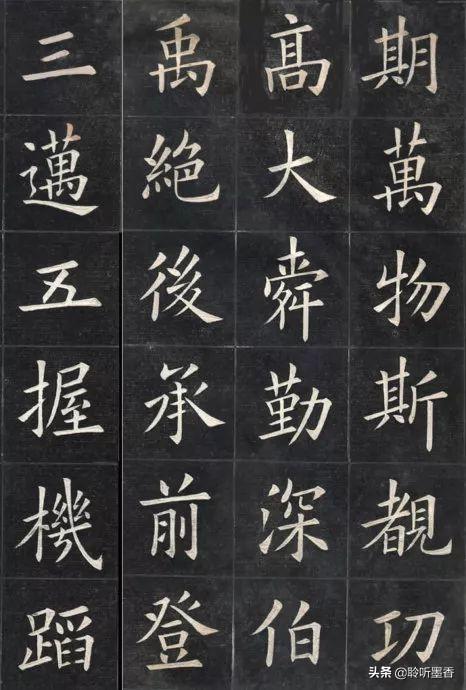 期萬物斯覩功
髙大舜勤深伯
禹絕後承前登
三邁五握機蹈
头条 @聆听墨香